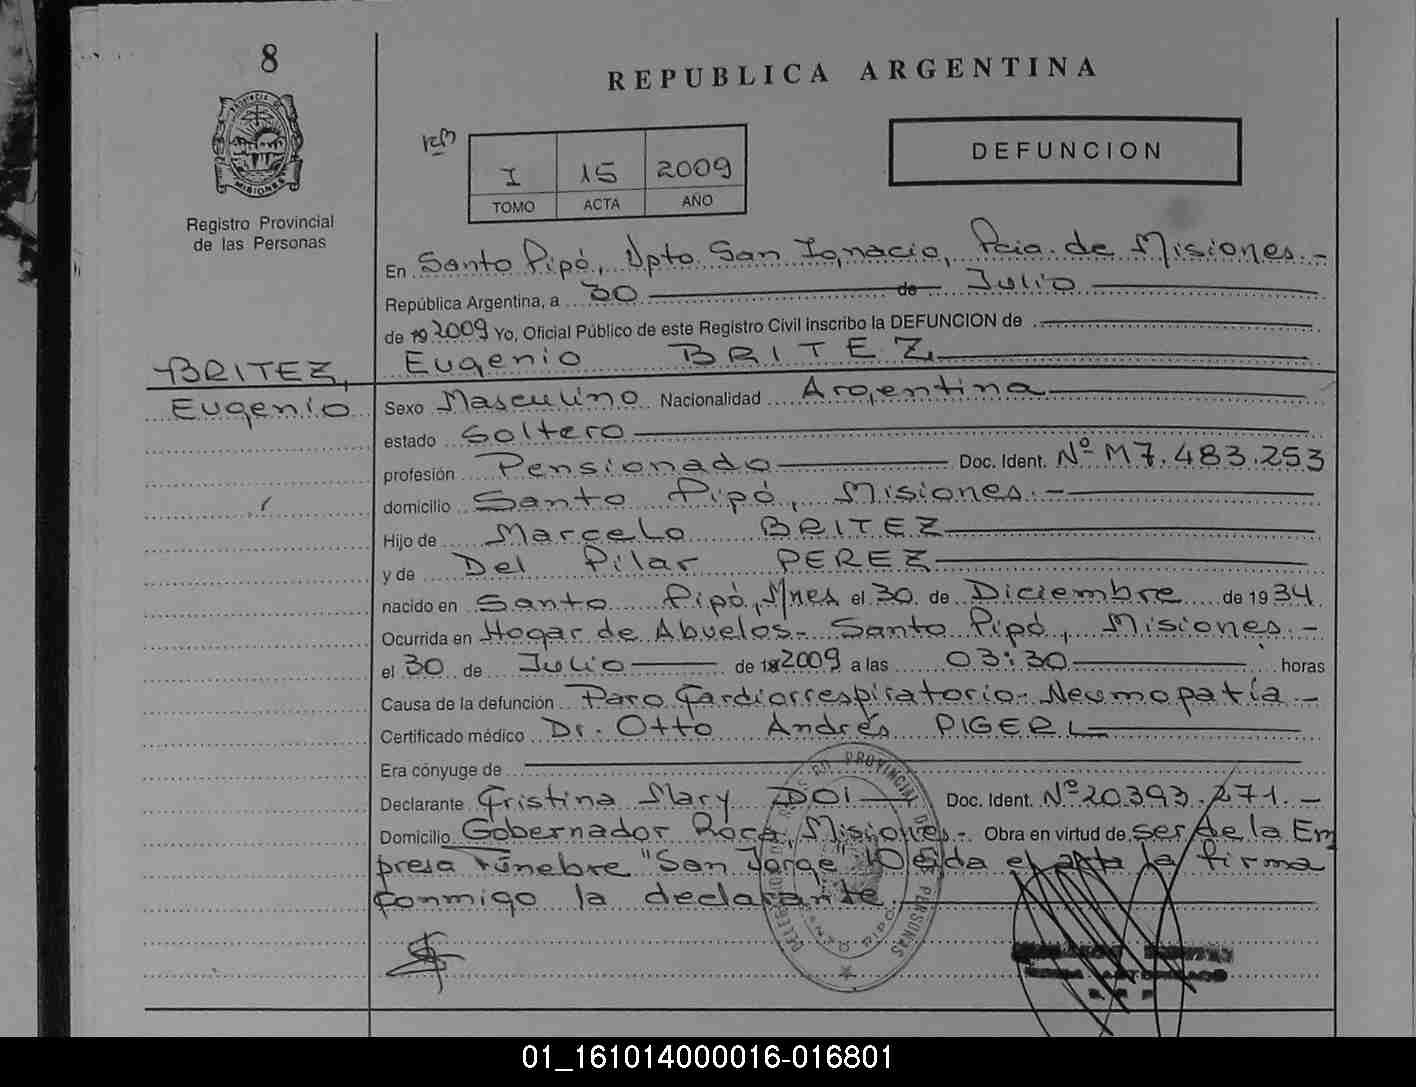 8
REPUBLICA ARGENTINA
PROVINCIA DE
MISIONES
Registro Provincial
de las Personas
DEFUNCION
I 15 2009
TOMO ACTA AÑO
En Santo Pipó, Dpto San Ignacio, Pcia. de Misiones.-
República Argentina, a 30 de Julio
de 19 2009 Yo, Oficial Público de este Registro Civil inscribo la DEFUNCION de
Eugenio BRITEZ
BRITEZ,
Eugenio
Sexo Masculino Nacionalidad Argentina
estado Soltero
profesión Pensionado Doc. Ident. Nº M7.483.253
domicilio Santo Pipó, Misiones.-
Hijo de Marcelo BRITEZ
y de Del Pilar PEREZ
nacido en Santo Pipó, Mnes el 30 de Diciembre de 1934
Ocurrida en Hogar de Abuelos- Santo Pipó, Misiones.-
el 30 de Julio de 2009 a las 03:30 horas
Causa de la defunción Paro Cardiorrespiratorio- Neumopatía-
Certificado médico Dr. Otto Andrés PIGERL
Era cónyuge de
Declarante Cristina Mary DOI Doc. Ident. Nº 20.393.271.-
Domicilio Gobernador Roca, Misiones.- Obra en virtud de ser de la Em
presa Fúnebre "San Jorge" Leída el acta la firma
conmigo la declarante.
01_161014000016-016801